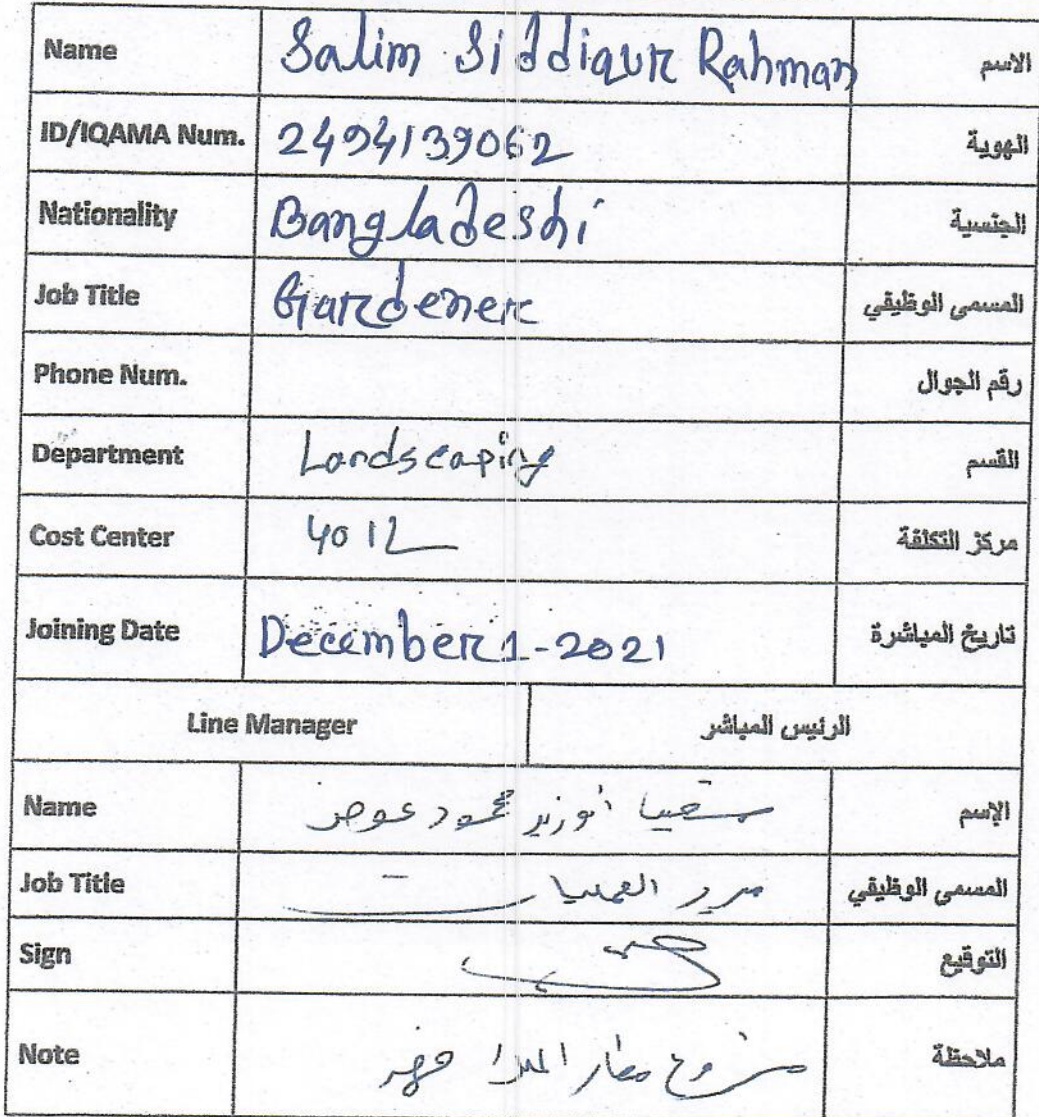 Name Salim Siddiqur Rahman الاسم
ID/IQAMA Num. 2494139062 الهوية
Nationality Bangladeshi الجنسية
Job Title Gardener المسمى الوظيفي
Phone Num. رقم الجوال
Department Landscaping القسم
Cost Center 4012 مركز التكلفة
Joining Date December 1-2021 تاريخ المباشرة
Line Manager الرئيس المباشر
Name محمود عوض الإسم
Job Title مدير العمليات المسمى الوظيفي
Sign التوقيع
Note مشروع مطار الملك فهد ملاحظة